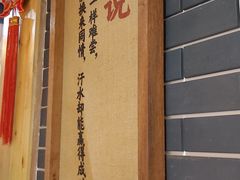 说
一样难尝，
换来同情，汗水却能赢得成